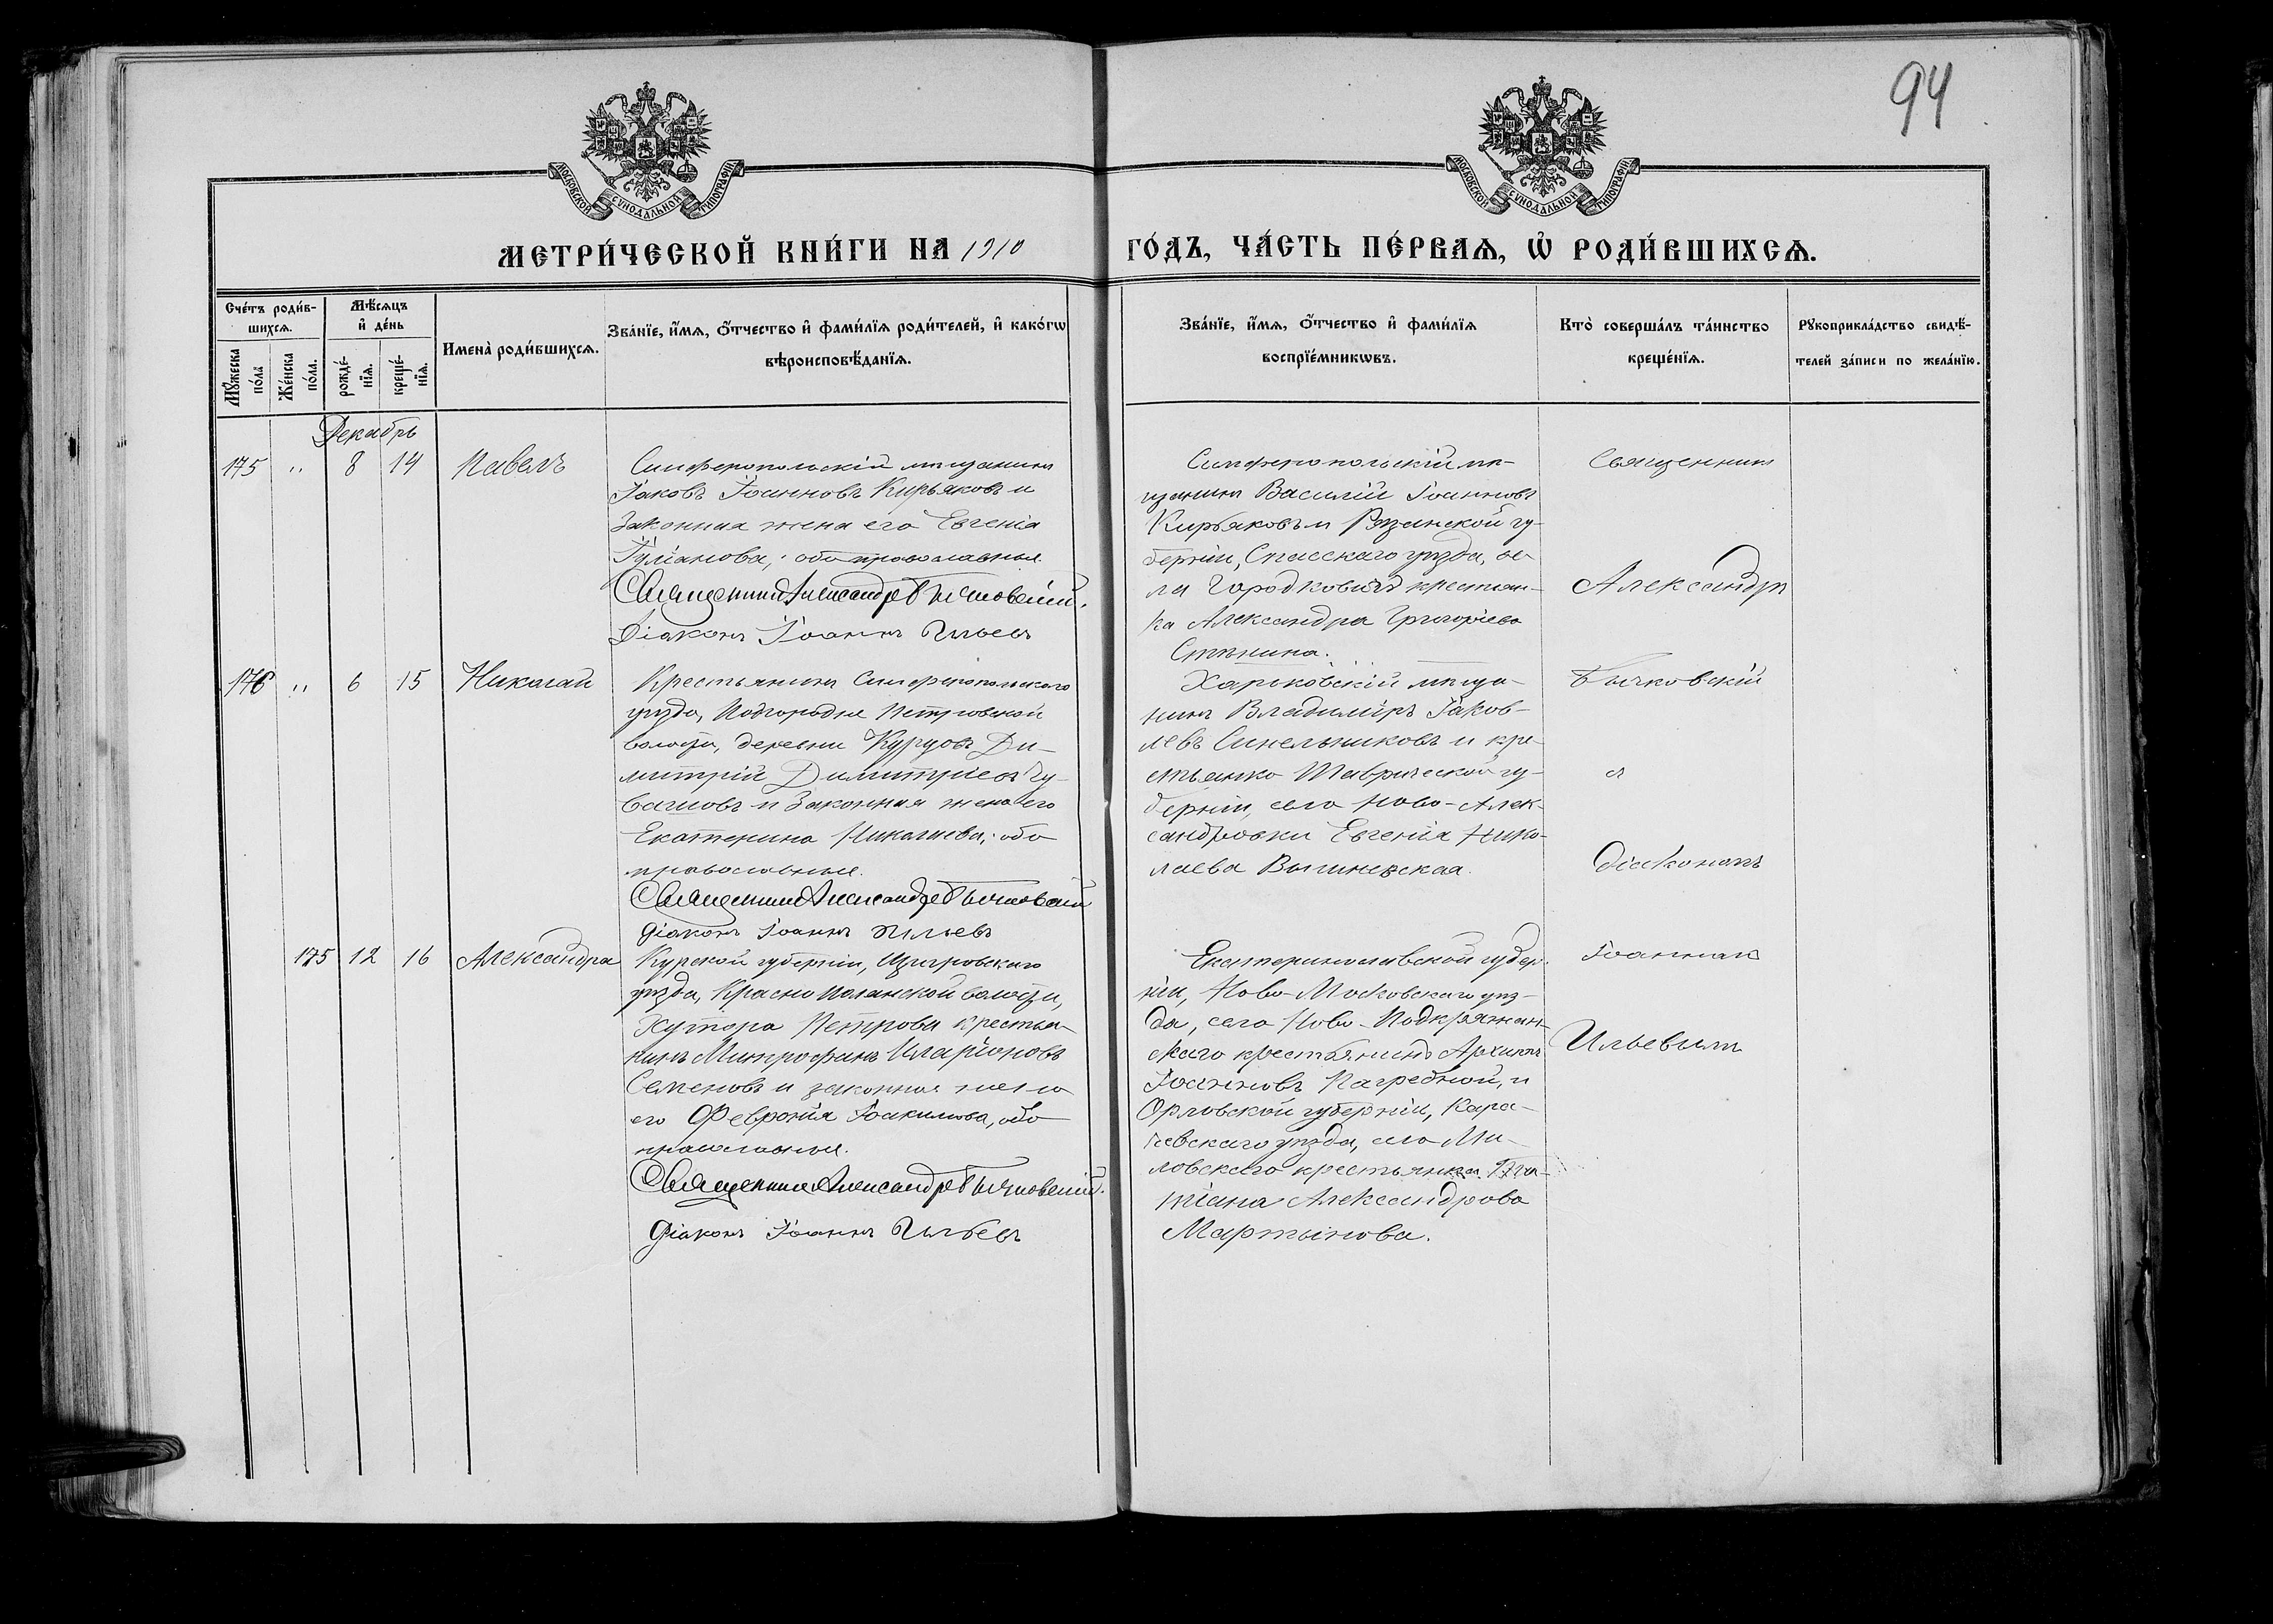 94
МОСКОВСКОЙ СѴНОДАЛЬНОЙ ТИПОГРАФІИ
МОСКОВСКОЙ СѴНОДАЛЬНОЙ ТИПОГРАФІИ
МЕТРИ́ЧЕСКОЙ КНИ́ГИ НА 1910 ГО́ДЪ, ЧА́СТЬ ПЕ́РВАѦ, Ѡ҆ РОДИ́ВШИХСѦ.
Сче́тъ роди́в-
шихсѧ.
Мꙋ́жеска по́ла
Же́нска по́ла.
Мѣ́сѧцъ
и҆ де́нь
рожде́-
нїѧ.
креще́-
нїѧ.
Имена̀ роди́вшихсѧ.
Зва́нїе, и҆́мѧ, ѻ҆́тчество и҆ фами́лїѧ роди́телей, и҆ како́гѡ
вѣроисповѣ́данїѧ.
Зва́нїе, и҆́мѧ, ѻ҆́тчество и҆ фами́лїѧ
воспрїе́мникѡвъ.
Кто̀ соверша́лъ та́инство
креще́нїѧ.
Рꙋкоприкла́дство свидѣ́-
телей за́писи по жела́нїю.
Декабрь
175 " 8 14 Павелъ
Симферопольскій мѣщанинъ
Іаковъ Іоанновъ Кирьяковъ и
законная жена его Евгенія
оба православные.
Священникъ Александръ Бычковскій.
Діаконъ Іоаннъ Ильевъ
Симферопольскій мѣ-
щанинъ Василій Іоанновъ
Кирьяковъ и Рязанской гу-
берніи, Спасскаго уѣзда, се-
ла крестьян-
ка Александра Григоріева
Священникъ
Александръ
176 " 6 15 Николай
Крестьянинъ Симферопольскаго
уѣзда, Подгородне Петровской
волости, деревни Курцовъ Ди-
митрій Димитріевъ Чу-
вашовъ и законная жена его
Екатерина Николаева; оба
православные.
Священникъ Александръ Бычковскій
Діаконъ Іоаннъ Ильевъ
Харьковскій мѣща-
нинъ Владиміръ Іаков-
левъ Синельниковъ и кре-
стьянка Таврической гу-
берніи, села Ново-Алек-
сандровки Евгенія Нико-
лаева
Бычковскій
съ
діакономъ
175 12 16 Александра
Курской губерніи, Щигровскаго
уѣзда, Красно Полянской волости,
Хутора Петрова крестья-
нинъ Митрофанъ Иларіоновъ
Семеновъ и законная жена
его Февронія Іоакимова, оба
православные.
Священникъ Александръ Бычковскій.
Діаконъ Іоаннъ Ильевъ
Екатеринославской губер-
ніи, Ново-Московскаго уѣз-
да, села Ново-Подкряжан-
скаго крестьянинъ Архипъ
Іоанновъ Пагребной, и
Орловской губерніи, Кара-
чевскаго уѣзда, села Ми-
ловскаго крестьянка Та-
тіана Александрова
Мартынова.
Іоанномъ
Ильевымъ